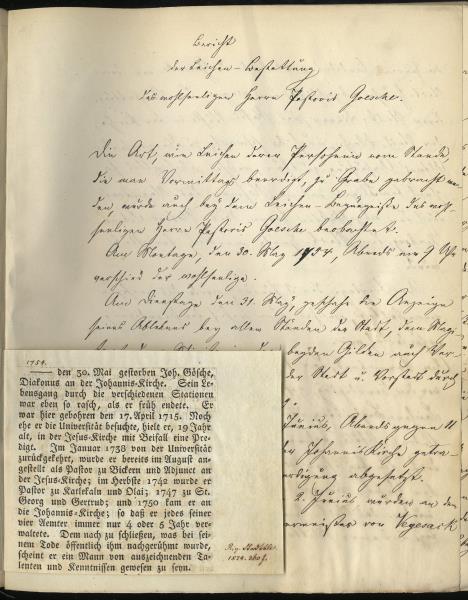 Bericht
der Leichen-Bestattung
des wohlseeligen Herrn Pastoris Goesche.
Die Art, wie Leichen derer Personen vom Stande,
die man Vormittags beerdigt, zu Grabe gebracht wer-
den, wurde auch bey dem Leichen-Begängniße des wohl-
seeligen Herrn Pastoris Goesche beobachtet.
Am Montage, den 30. May 1754, Abends um 9 Uhr
verschied der wohlseelige.
Am Dienstage den 31. May, geschahe die Anzeige
seines Ablebens bey allen Ständen der Stadt, dem Magi-
beyden Gilden auch
der Stadt u. Vorstadt durch
Junius, Abends gegen 11
der Johannis Kirche getra-
abgesetzt.
2. Junius wurden an den
von Vegesack
1754.
den 30. Mai gestorben Joh. Gösche,
Diakonus an der Johannis-Kirche. Sein Le-
bensgang durch die verschiedenen Stationen
war eben so rasch, als er früh endete. Er
war hier gebohren den 17. April 1715. Noch
ehe er die Universität besuchte, hielt er, 19 Jahr
alt, in der Jesus-Kirche mit Beifall eine Pre-
digt. Im Januar 1738 von der Universität
zurückgekehrt, wurde er bereits im August an-
gestellt als Pastor zu Bickern und Adjunct an
der Jesus-Kirche; im Herbste 1742 wurde er
Pastor zu Katlekaln und Olai; 1747 zu St.
Georg und Gertrud; und 1750 kam er an
die Johannis-Kirche; so daß er jedes seiner
vier Aemter immer nur 4 oder 5 Jahr ver-
waltete. Dem nach zu schließen, was bei sei-
nem Tode öffentlich ihm nachgerühmt wurde,
scheint er ein Mann von auszeichnenden Ta-
lenten und Kenntnissen gewesen zu seyn.